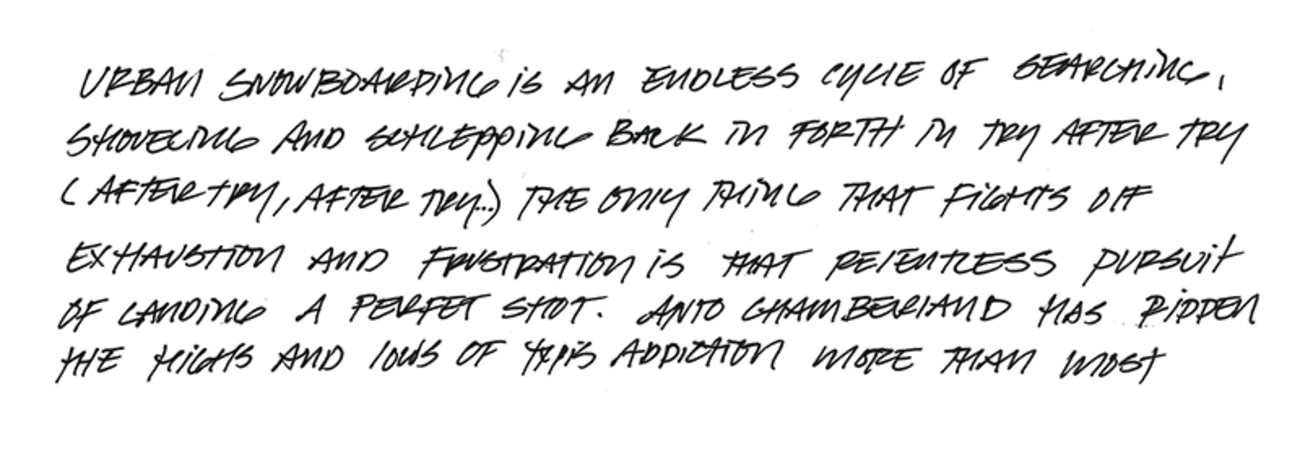 URBAN SNOWBOARDING iS AN ENDLESS CYCLE OF SEARCHING,
SHOVELING AND SCHLEPPING BACK IN FORTH IN TRY AFTER TRY
(AFTER TRY, AFTER TRY...) THE ONLY THING THAT FIGHTS OFF
EXHAUSTION AND FRUSTRATION IS THAT RELENTLESS PURSUIT
OF LANDING A PERFET SHOT. ANTO CHAMBERLAND HAS RIDDEN
THE HIGHS AND LOWS OF THIS ADDICTION MORE THAN MOST